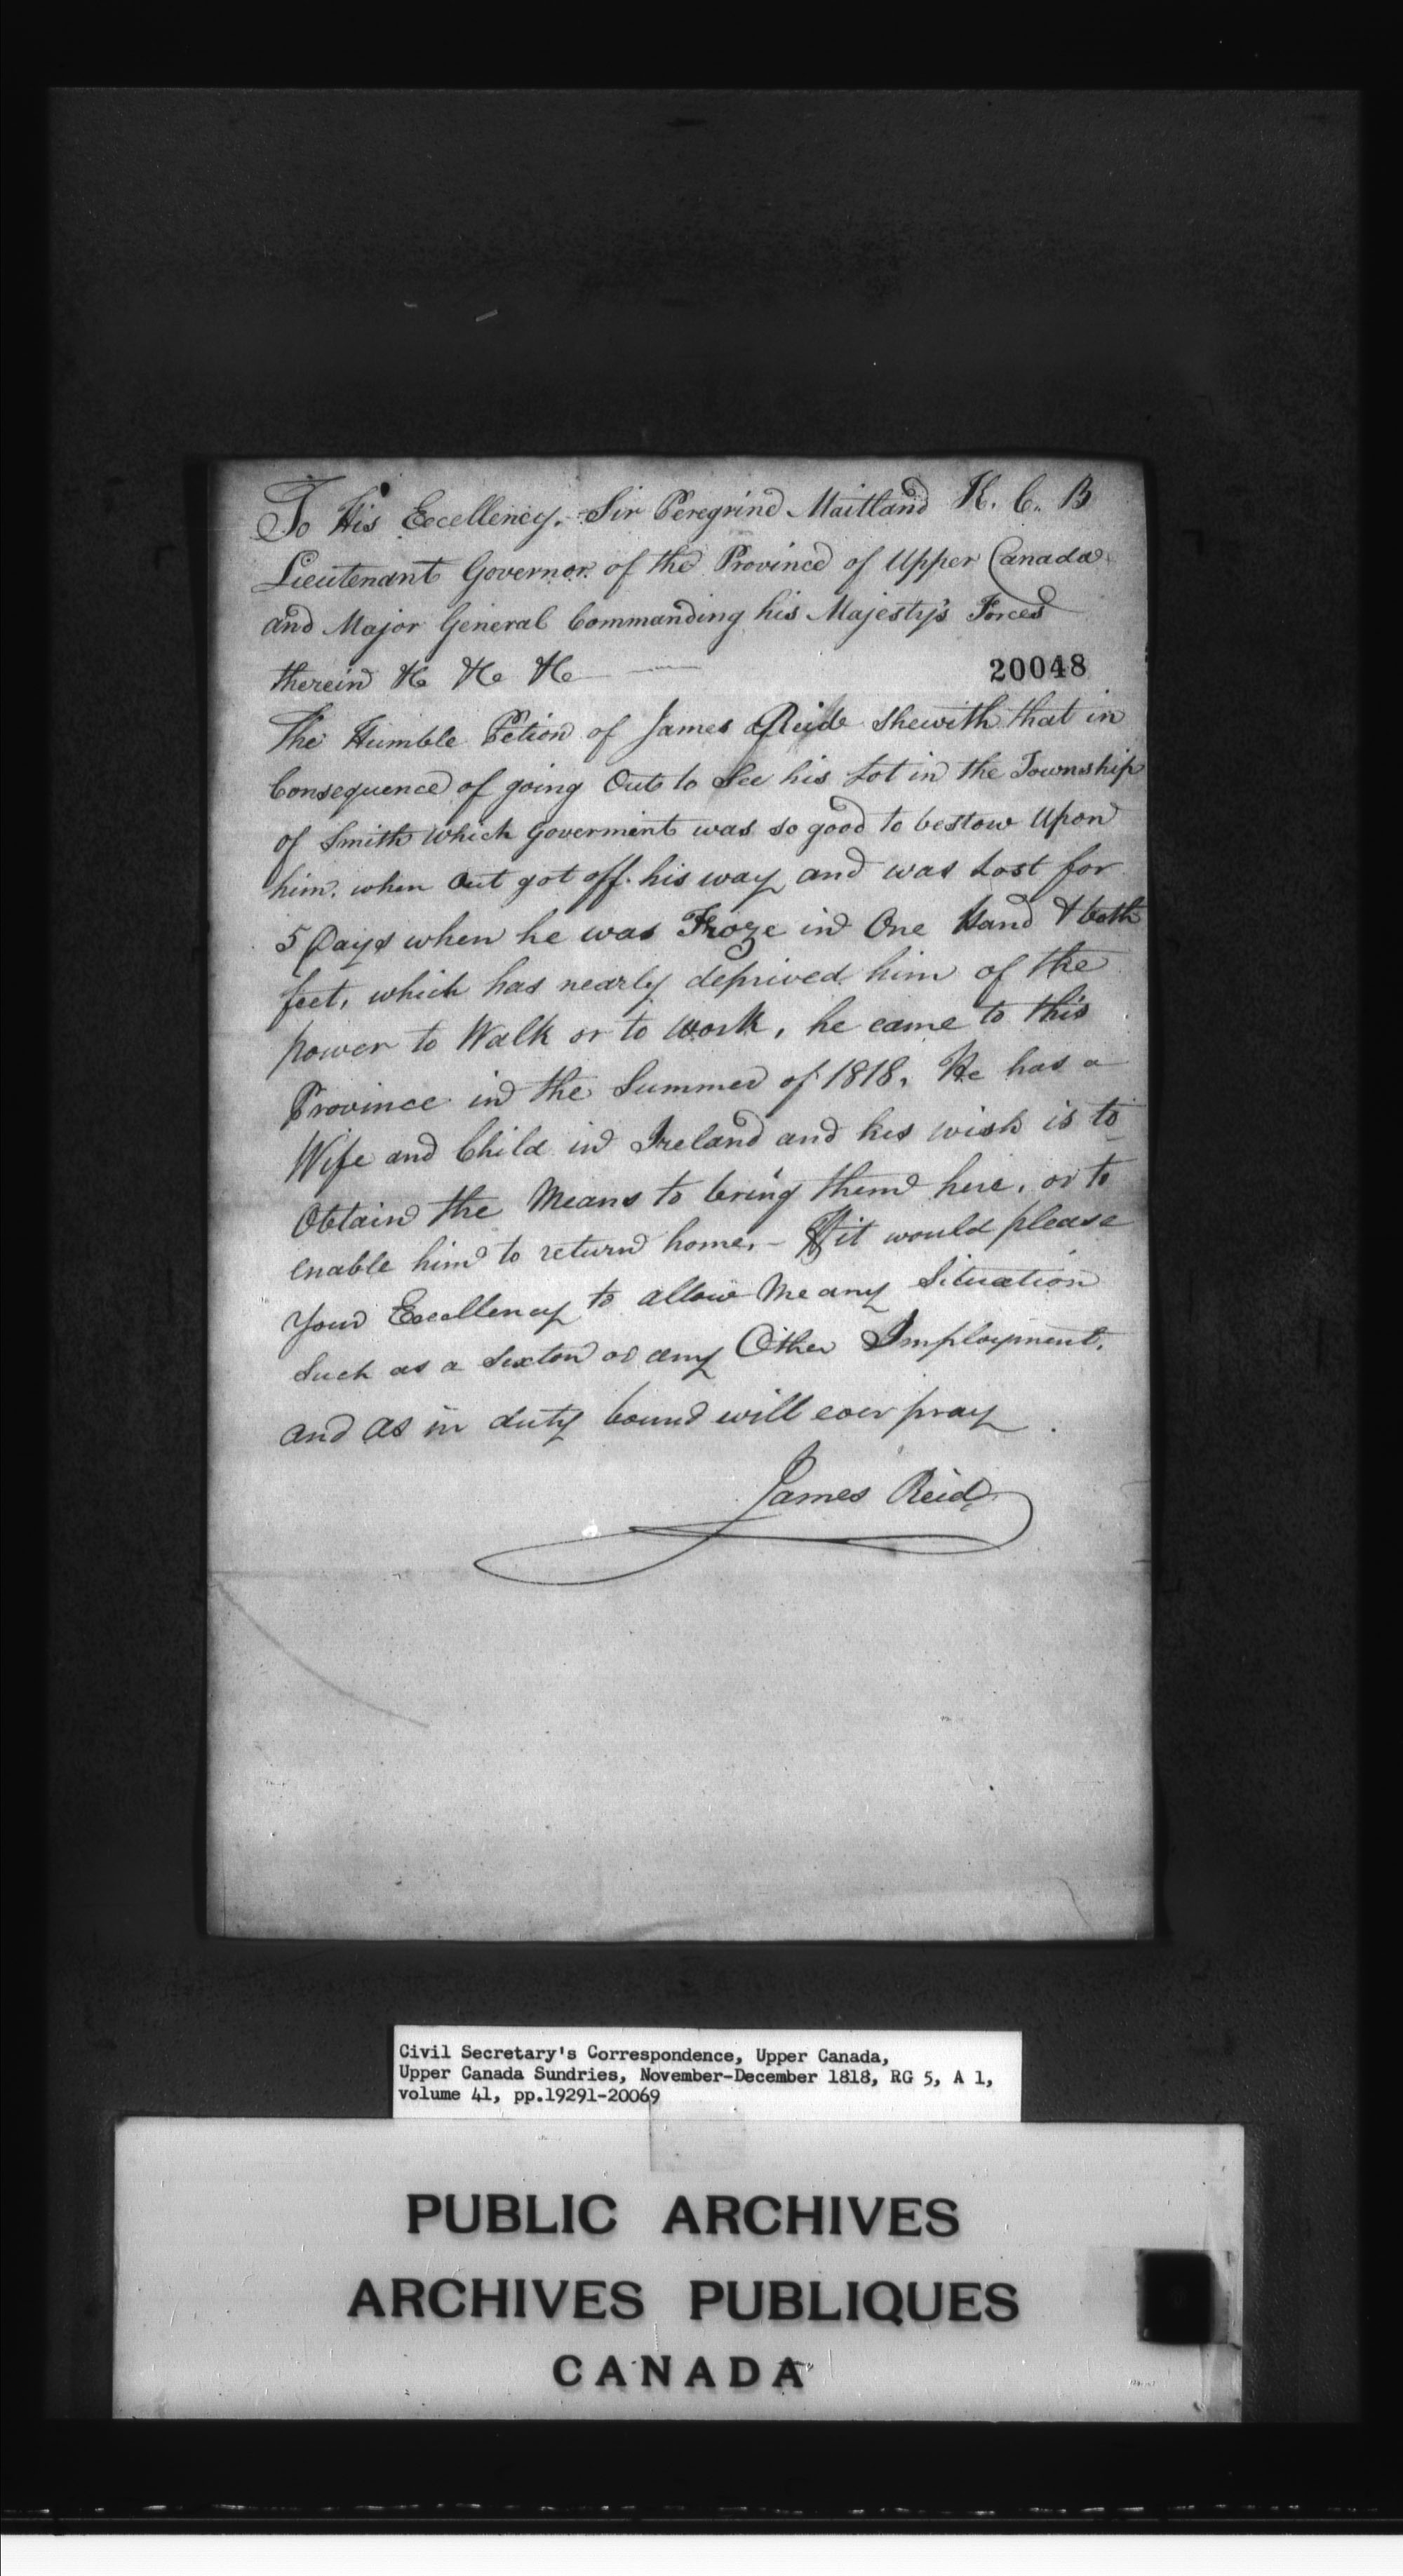 To His Excellency. Sir Peregrine Maitland K. C. B
Lieutenant Governor of the Province of Upper Canada
and Major General Commanding his Majesty's Forces
therein &c &c &c
20048
The Humble Petion of James Reid Shewith that in
Consequence of going Out to See his Lot in the Township
of Smith which Goverment was so good to bestow Upon
him. when Out got off his way and was Lost for
5 Days when he was Froze in One Hand & both
feet, which has nearly deprived him of the
power to Walk or to Work, he came to this
Province in the Summer of 1818, He has a
Wife and Child in Ireland and his wish is to
Obtain the Means to bring them here, or to
enable him to return home,- If it would please
Your Excellency to allow Me any Situation
Such as a Sexton or any Other Imployment,
and as in duty bound will ever pray
James Reid
Civil Secretary's Correspondence, Upper Canada,
Upper Canada Sundries, November-December 1818, RG 5, A 1,
volume 41, pp.19291-20069
PUBLIC ARCHIVES
ARCHIVES PUBLIQUES
CANADA